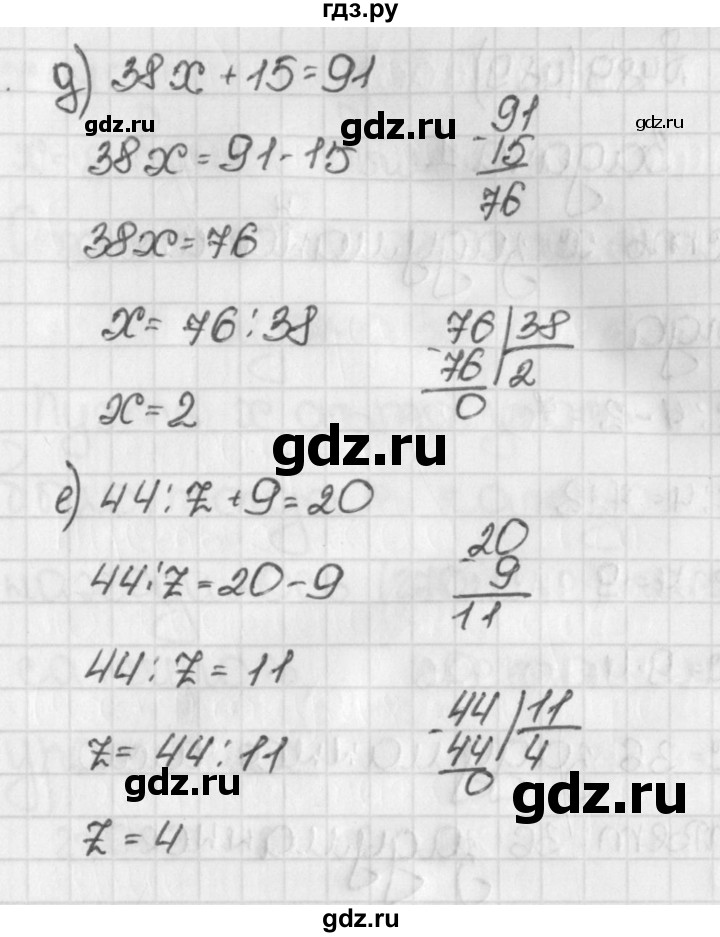 гдз.ру
д) 38x + 15 = 91
gdz.ru
gdz.ru
gdz.ru
38x = 91 - 15
91
- 15
76
38x = 76
x = 76 : 38
76 | 38
- 76 | 2
0
x = 2
gdz.ru
е) 44 : z + 9 = 20
44 : z = 20 - 9
20
- 9
11
44 : z = 11
z = 44 : 11
44 | 11
- 44 | 4
0
gdz.ru
gdz.ru
z = 4
gdz.ru